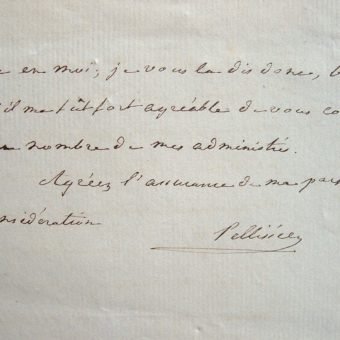 en moi; je vous la dis donc,
il me fût fort agréable de vous co
nombre de mes administrés.
Agréez l'assurance de ma par
nsidération
Pellissier